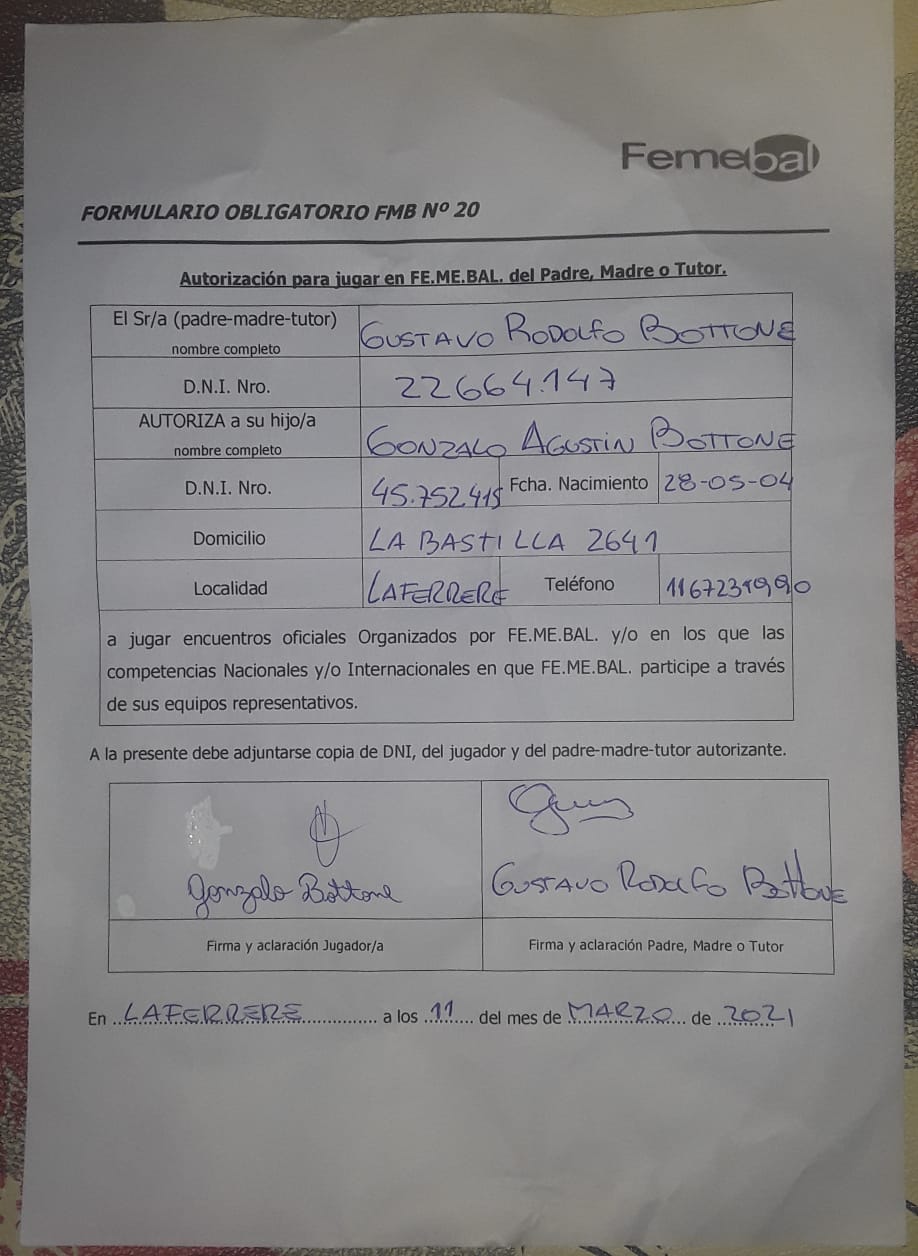 Femebal
FORMULARIO OBLIGATORIO FMB Nº 20
Autorización para jugar en FE.ME.BAL. del Padre, Madre o Tutor.
El Sr/a (padre-madre-tutor) nombre completo GUSTAVO RODOLFO BOTTONE
D.N.I. Nro. 22664.147
AUTORIZA a su hijo/a nombre completo GONZALO AGUSTIN BOTTONE
D.N.I. Nro. 45.752.415 Fcha. Nacimiento 28-05-04
Domicilio LA BASTILLA 2641
Localidad LAFERRERE Teléfono
a jugar encuentros oficiales Organizados por FE.ME.BAL. y/o en los que las
competencias Nacionales y/o Internacionales en que FE.ME.BAL. participe a través
de sus equipos representativos.
A la presente debe adjuntarse copia de DNI, del jugador y del padre-madre-tutor autorizante.
Gonzalo Bottone GUSTAVO RODOLFO BOTTONE
Firma y aclaración Jugador/a Firma y aclaración Padre, Madre o Tutor
En LAFERRERE a los 11 del mes de MARZO de 2021